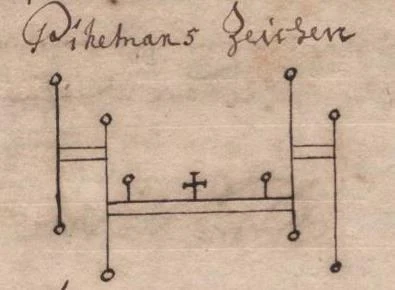 Pikelmans Zeichen